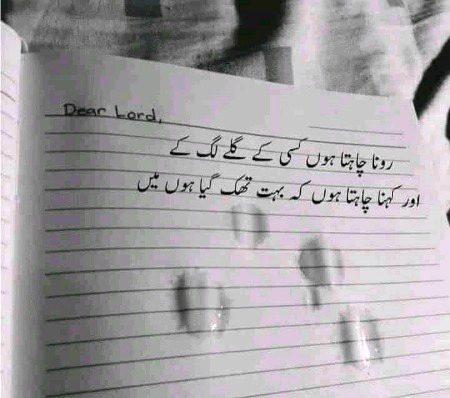 Dear Lord,
رونا چاہتا ہوں کسی کے گلے لگ کے
اور کہنا چاہتا ہوں کہ بہت تھک گیا ہوں میں